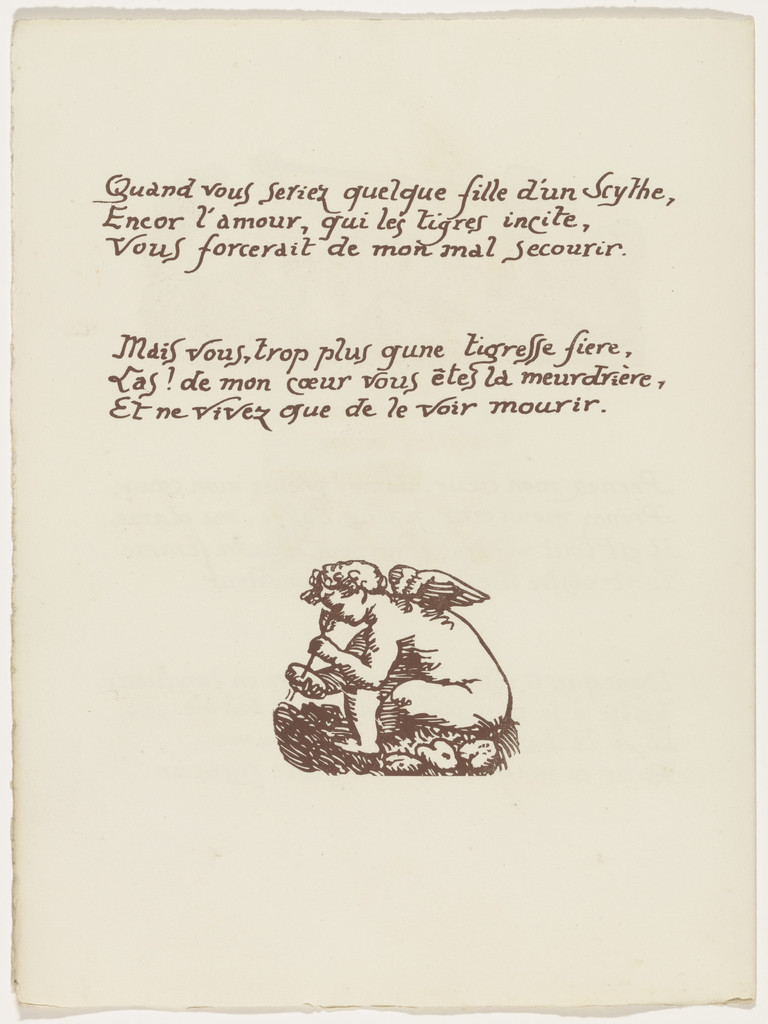 Quand vous seriez quelque fille d'un Scythe,
Encor l'amour, qui les tigres incite,
Vous forcerait de mon mal secourir.
Mais vous, trop plus qune tigresse fiere,
Las! de mon cœur vous êtes la meurdrière,
Et ne vivez que de le voir mourir.